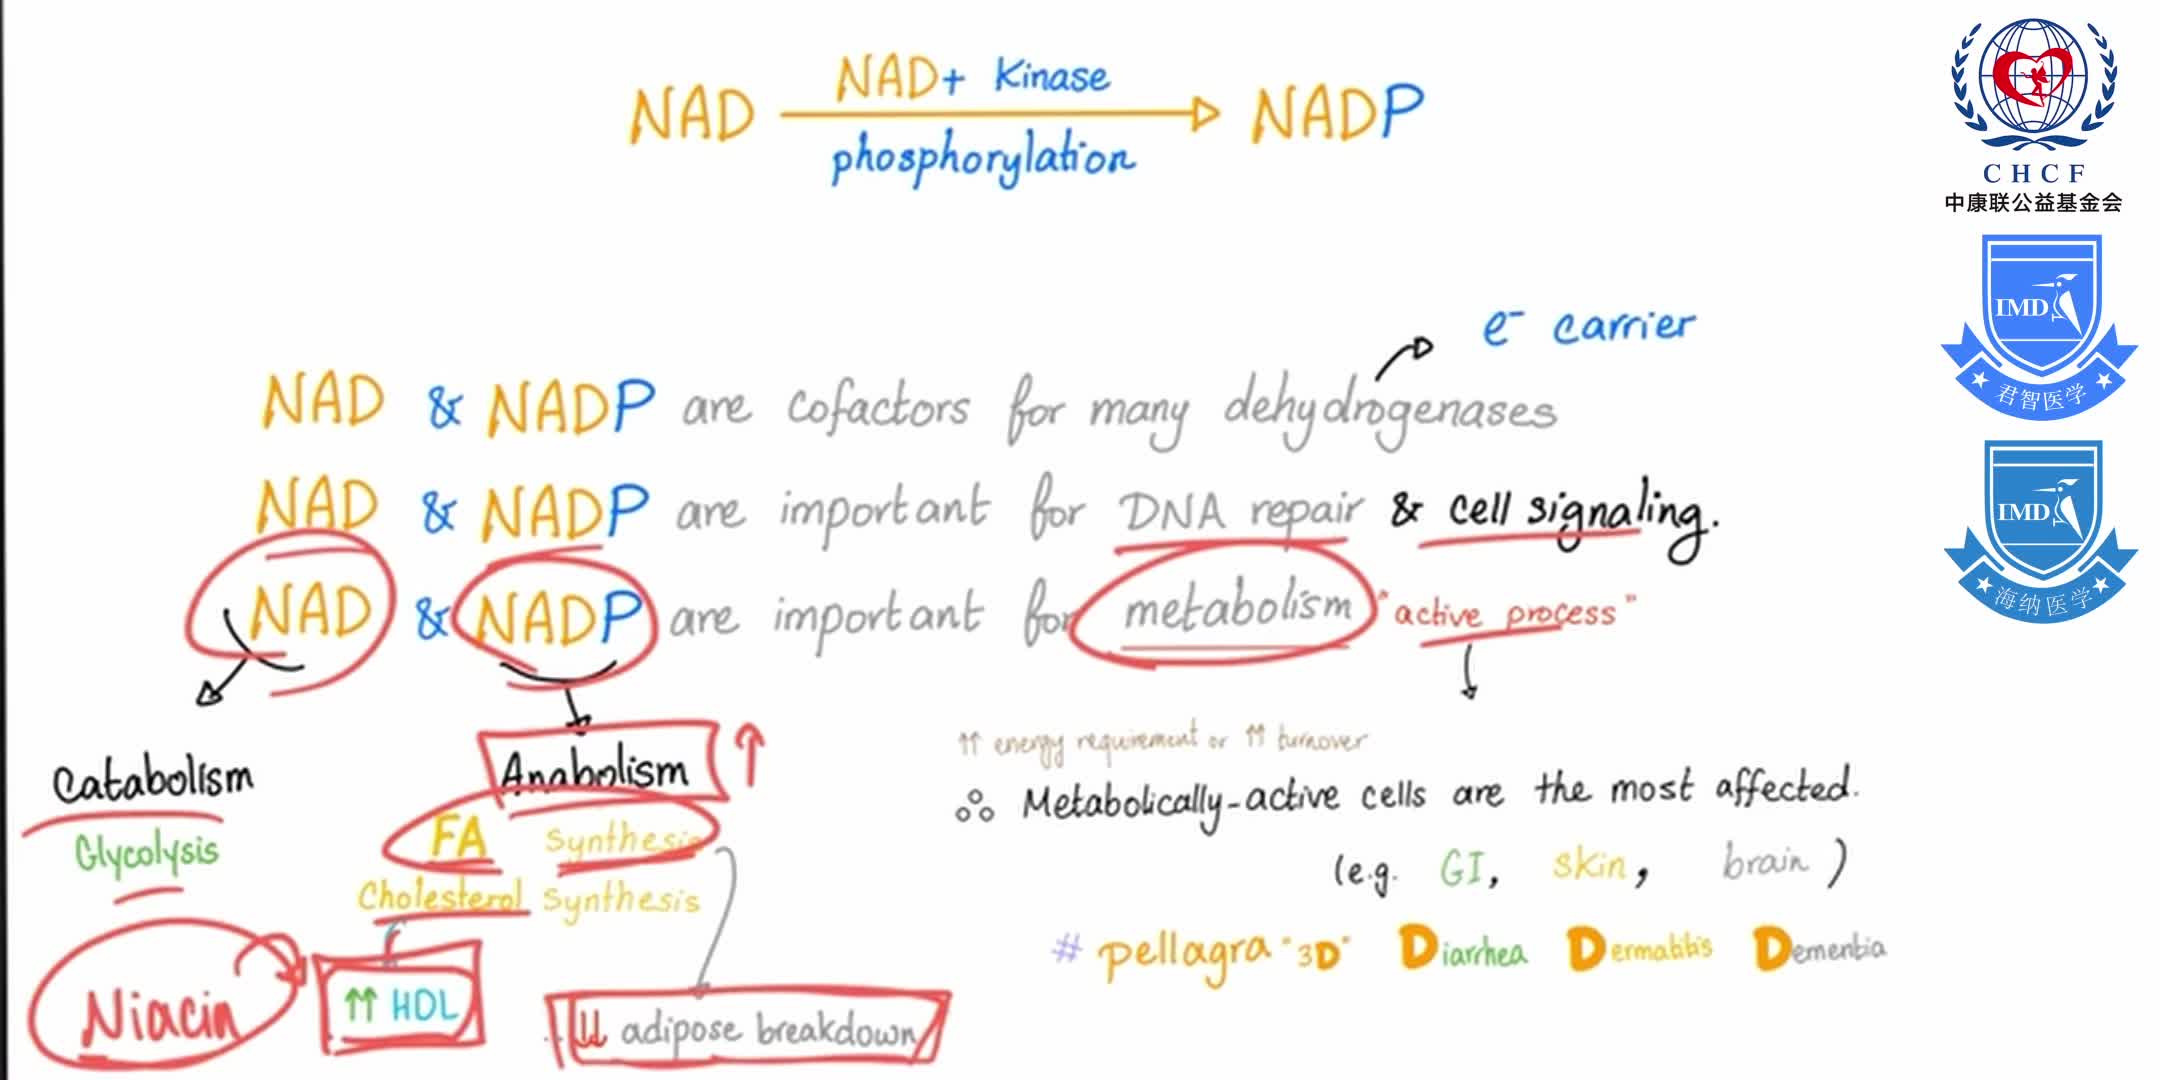 NAD NAD+ Kinase NADP
phosphorylation
e⁻ carrier
NAD & NADP are cofactors for many dehydrogenases
NAD & NADP are important for DNA repair & cell signaling.
NAD & NADP are important for metabolism "active process"
↑↑ energy requirement or ↑↑ turnover
Catabolism
Glycolysis
Anabolism ↑
FA Synthesis
Cholesterol Synthesis
Niacin
↑↑ HDL
↓↓ adipose breakdown
∴ Metabolically-active cells are the most affected.
(e.g. GI, skin, brain)
# pellagra "3D" Diarrhea Dermatitis Dementia
CHCF
中康联公益基金会
IMD
君智医学
IMD
海纳医学